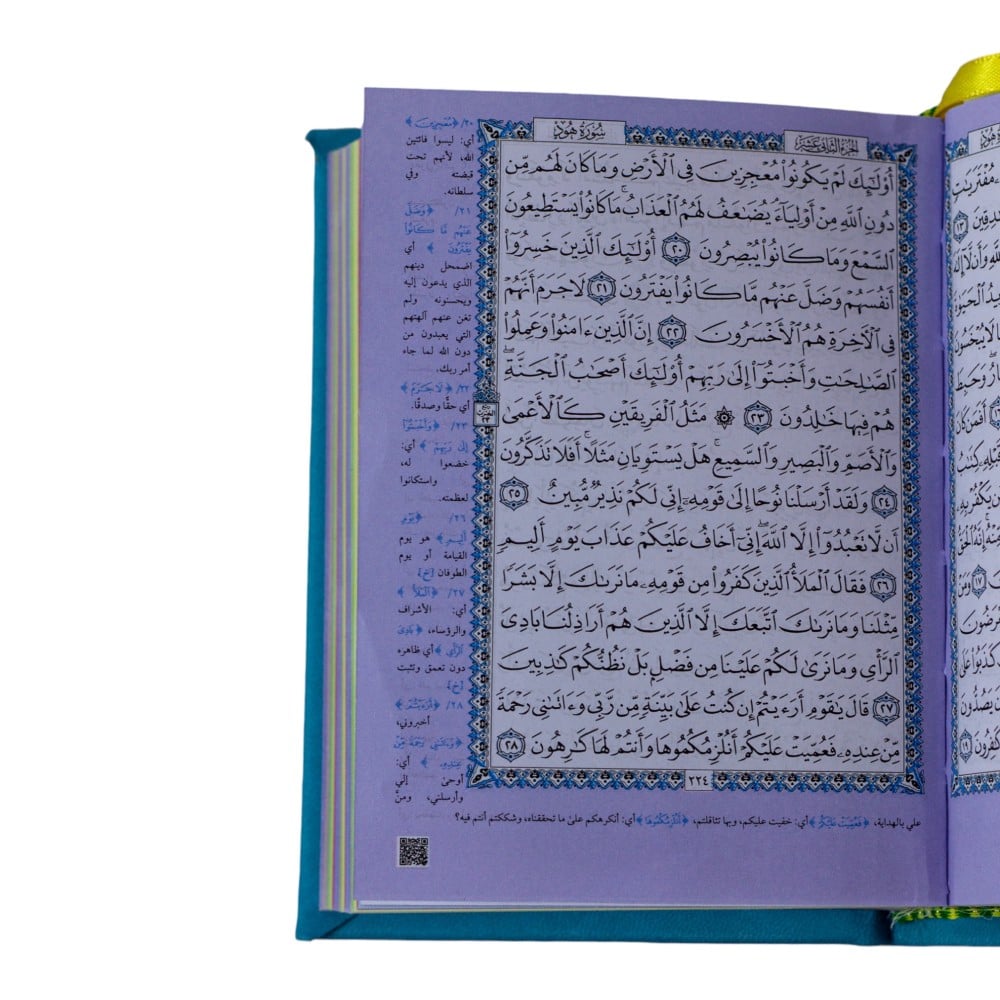 سُورَةُ هُودٍ
الجُزْءُ الثَّانِي عَشَرَ
أُوْلَٰٓئِكَ لَمْ يَكُونُواْ مُعْجِزِينَ فِي ٱلْأَرْضِ وَمَا كَانَ لَهُم مِّن
دُونِ ٱللَّهِ مِنْ أَوْلِيَآءَۘ يُضَٰعَفُ لَهُمُ ٱلْعَذَابُۚ مَا كَانُواْ يَسْتَطِيعُونَ
ٱلسَّمْعَ وَمَا كَانُواْ يُبْصِرُونَ ٢٠ أُوْلَٰٓئِكَ ٱلَّذِينَ خَسِرُوٓاْ
أَنفُسَهُمْ وَضَلَّ عَنْهُم مَّا كَانُواْ يَفْتَرُونَ ٢١ لَا جَرَمَ أَنَّهُمْ
فِي ٱلْأٓخِرَةِ هُمُ ٱلْأَخْسَرُونَ ٢٢ إِنَّ ٱلَّذِينَ ءَامَنُواْ وَعَمِلُواْ
ٱلصَّٰلِحَٰتِ وَأَخْبَتُوٓاْ إِلَىٰ رَبِّهِمْ أُوْلَٰٓئِكَ أَصْحَٰبُ ٱلْجَنَّةِۖ
هُمْ فِيهَا خَٰلِدُونَ ٢٣ ۞ مَثَلُ ٱلْفَرِيقَيْنِ كَٱلْأَعْمَىٰ
وَٱلْأَصَمِّ وَٱلْبَصِيرِ وَٱلسَّمِيعِۚ هَلْ يَسْتَوِيَانِ مَثَلًاۚ أَفَلَا تَذَكَّرُونَ
٢٤ وَلَقَدْ أَرْسَلْنَا نُوحًا إِلَىٰ قَوْمِهِۦٓ إِنِّي لَكُمْ نَذِيرٌ مُّبِينٌ ٢٥
أَن لَّا تَعْبُدُوٓاْ إِلَّا ٱللَّهَۖ إِنِّيٓ أَخَافُ عَلَيْكُمْ عَذَابَ يَوْمٍ أَلِيمٍ
٢٦ فَقَالَ ٱلْمَلَأُ ٱلَّذِينَ كَفَرُواْ مِن قَوْمِهِۦ مَا نَرَىٰكَ إِلَّا بَشَرًا
مِّثْلَنَا وَمَا نَرَىٰكَ ٱتَّبَعَكَ إِلَّا ٱلَّذِينَ هُمْ أَرَاذِلُنَا بَادِيَ
ٱلرَّأْيِ وَمَا نَرَىٰ لَكُمْ عَلَيْنَا مِن فَضْلٍۭ بَلْ نَظُنُّكُمْ كَٰذِبِينَ
٢٧ قَالَ يَٰقَوْمِ أَرَءَيْتُمْ إِن كُنتُ عَلَىٰ بَيِّنَةٍ مِّن رَّبِّي وَءَاتَىٰنِي رَحْمَةً
مِّنْ عِندِهِۦ فَعُمِّيَتْ عَلَيْكُمْ أَنُلْزِمُكُمُوهَا وَأَنتُمْ لَهَا كَٰرِهُونَ ٢٨
٢٢٤
٢٠/ ﴿مُعْجِزِينَ﴾
أي: ليسوا فائتين
الله، لأنهم تحت
قبضته وفي
سلطانه.
٢١/ ﴿وَضَلَّ
عَنْهُم مَّا كَانُواْ
يَفْتَرُونَ﴾ أي
اضمحل دينهم
الذي يدعون إليه
ويحسنونه ولم
تغن عنهم آلهتهم
التي يعبدون من
دون الله لما جاء
أمر ربك.
٢٢/ ﴿لَا جَرَمَ﴾
أي حقًّا وصدقًا.
٢٣/ ﴿وَأَخْبَتُوٓاْ
إِلَىٰ رَبِّهِمْ﴾ أي:
خضعوا له،
واستكانوا
لعظمته.
٢٦/ ﴿يَوْمٍ
أَلِيمٍ﴾ هو يوم
القيامة أو يوم
الطوفان [خ]
٢٧/ ﴿ٱلْمَلَأُ﴾
أي: الأشراف
والرؤساء، ﴿بَادِيَ
ٱلرَّأْيِ﴾ أي ظاهره
دون تعمق وتثبت
[خ]
٢٨/ ﴿أَرَءَيْتُمْ﴾
أخبروني،
﴿وَءَاتَىٰنِي رَحْمَةً مِّنْ
عِندِهِۦ﴾ أي:
أوحى إلي
وأرسلني، ومنَّ
علي بالهداية، ﴿فَعُمِّيَتْ عَلَيْكُمْ﴾ أي: خفيت عليكم، وبها تثاقلتم، ﴿أَنُلْزِمُكُمُوهَا﴾ أي: أنكرهكم على ما تحققناه، وشككتم أنتم فيه؟